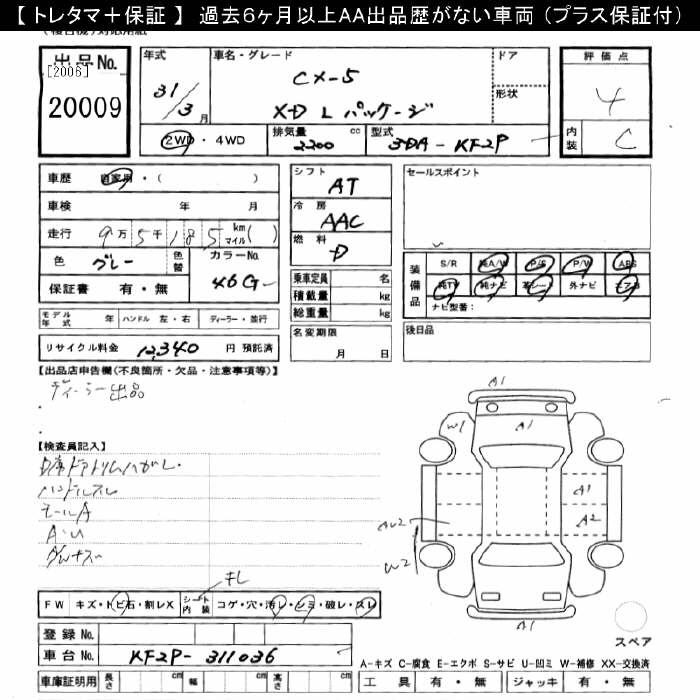 【 トレタマ＋保証 】 過去6ヶ月以上AA出品歴がない車両 (プラス保証付)
出品No.
[2006]
20009
年式
31/3月
車名・グレード
CX-5
XD Lパッケージ
ドア
形状
評価点
4
内装 C
2WD・4WD
排気量 2200 cc
型式 3DA-KF2P
車歴 自家用・( )
車検 年 月
走行 9万5千185 km マイル( )
色 グレー 色替
カラーNo. 46G
保証書 有・無
シフト AT
冷房 AAC
燃料 D
乗車定員 名
積載量 kg
総重量 kg
セールスポイント
装備品
S/R 純A/W P/S P/W ABS
純TV 純ナビ 革シート 外ナビ エアB
ナビ型番：
モデル年式 年 ハンドル 左・右 ディーラー・並行
リサイクル料金 12,340 円 預託済
名変期限 月 日
後日品
【出品店申告欄(不良箇所・欠品・注意事項等)】
ディーラー出品
【検査員記入】
D席ドアトリムハガレ・
ハンドルスレ
モールA
A・U
A1
W1
A1
A1
A2
AU2
W2
A1
キレ
FW キズ・トビ石・割レX シート内装 コゲ・穴・汚レ・シミ・破レ・スレ
登録 No.
車台 No. KF2P-311036
車庫証明用 長さ cm 幅 cm 高さ cm
スペア
A-キズ C-腐食 E-エクボ S-サビ U-凹ミ W-補修 XX-交換済
工具 有・無 ジャッキ 有・無